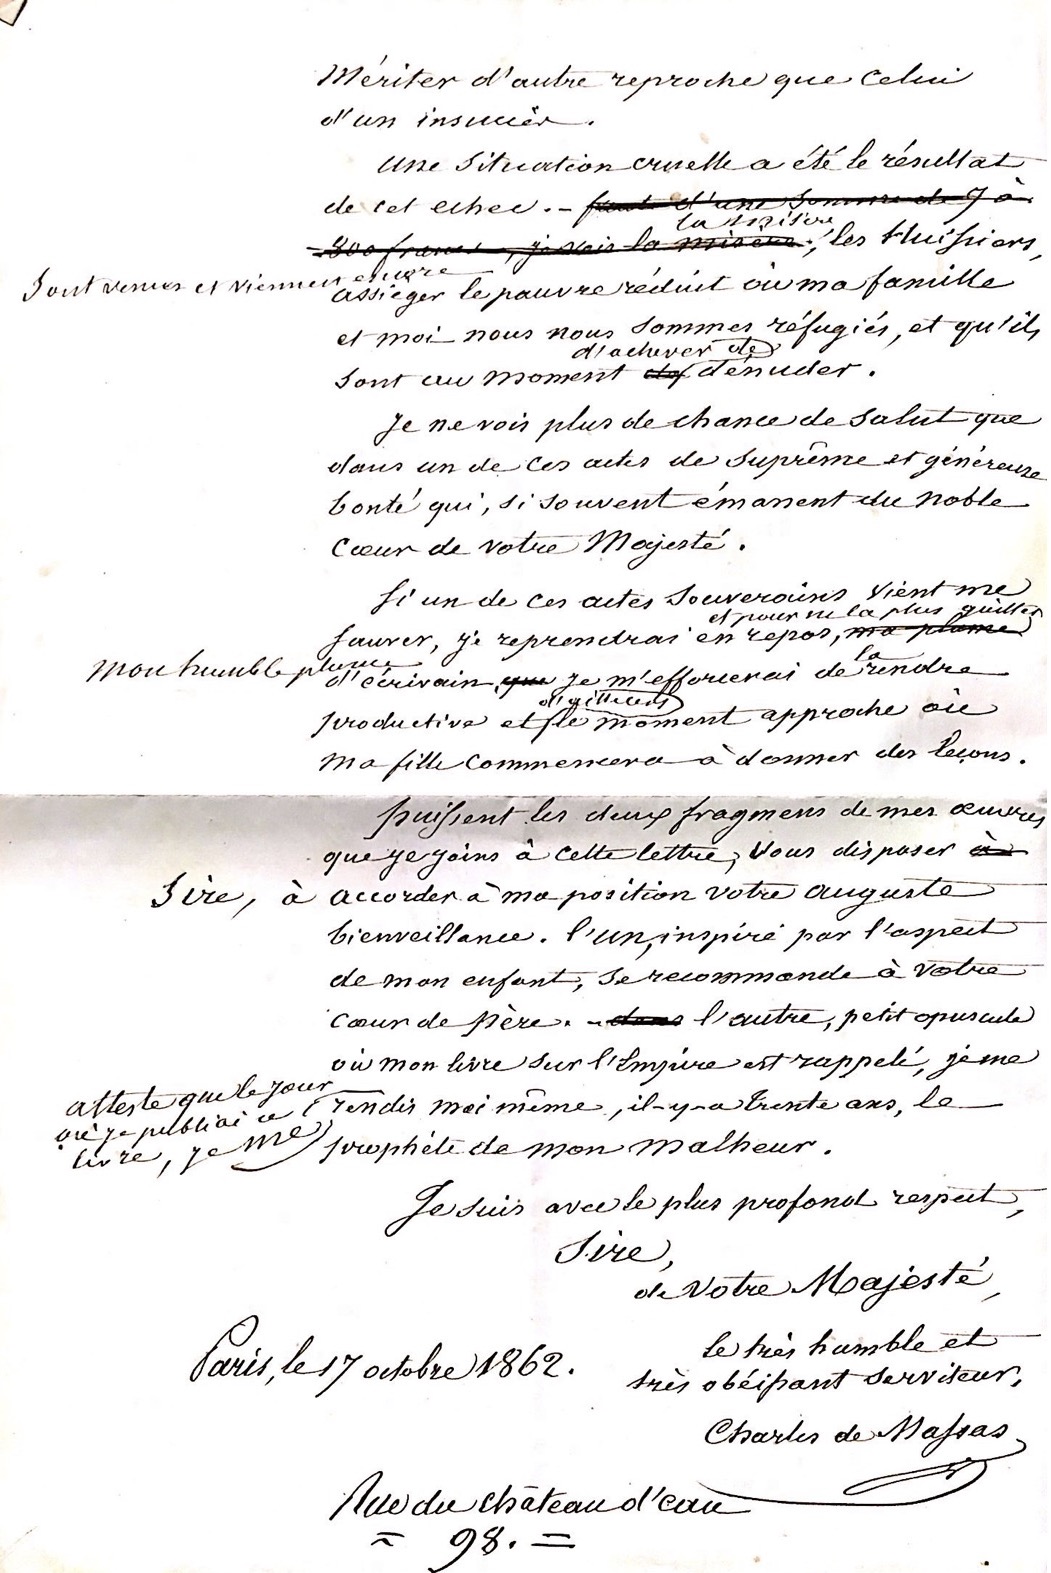 Mériter d'autre reproche que celui
d'un insuccès.
Une situation cruelle a été le résultat
de cet echec. - faute d'une somme de 7 à
la misère
800 francs, je vois la misère, les Huissiers,
Sont venus et viennent encore
assiéger le pauvre réduit où ma famille
et moi nous nous sommes réfugiés, et qu'ils
d'achever de
sont au moment de dénuder.
Je ne vois plus de chance de salut que
dans un de ces actes de suprême et généreuse
bonté qui, si souvent émanent du noble
cœur de votre Majesté.
Si un de ces actes souverains vient me
et pour ne la plus quitter
sauver, je reprendrai en repos, ma plume
mon humble plume
d'écrivain, que je m'efforcerai de la rendre
d'ailleurs
productive et le moment approche où
ma fille commencera à donner des leçons.
Puissent les deux fragmens de mes œuvres
que je joins à cette lettre, Vous disposer à
Sire, à accorder à ma position votre auguste
bienveillance. l'un, inspiré par l'aspect
de mon enfant, se recommande à Votre
cœur de Père. - dans l'autre, petit opuscule
où mon livre sur l'Empire est rappelé, je me
atteste que le jour
où je publiai ce
livre, je me
rendis moi même, il-y-a trente ans, le
prophète de mon malheur.
Je suis avec le plus profond respect,
Sire,
de Votre Majesté,
le très humble et
très obéissant serviteur,
Paris, le 17 octobre 1862.
Charles de Massas
Rue du Château d'eau
= 98. =